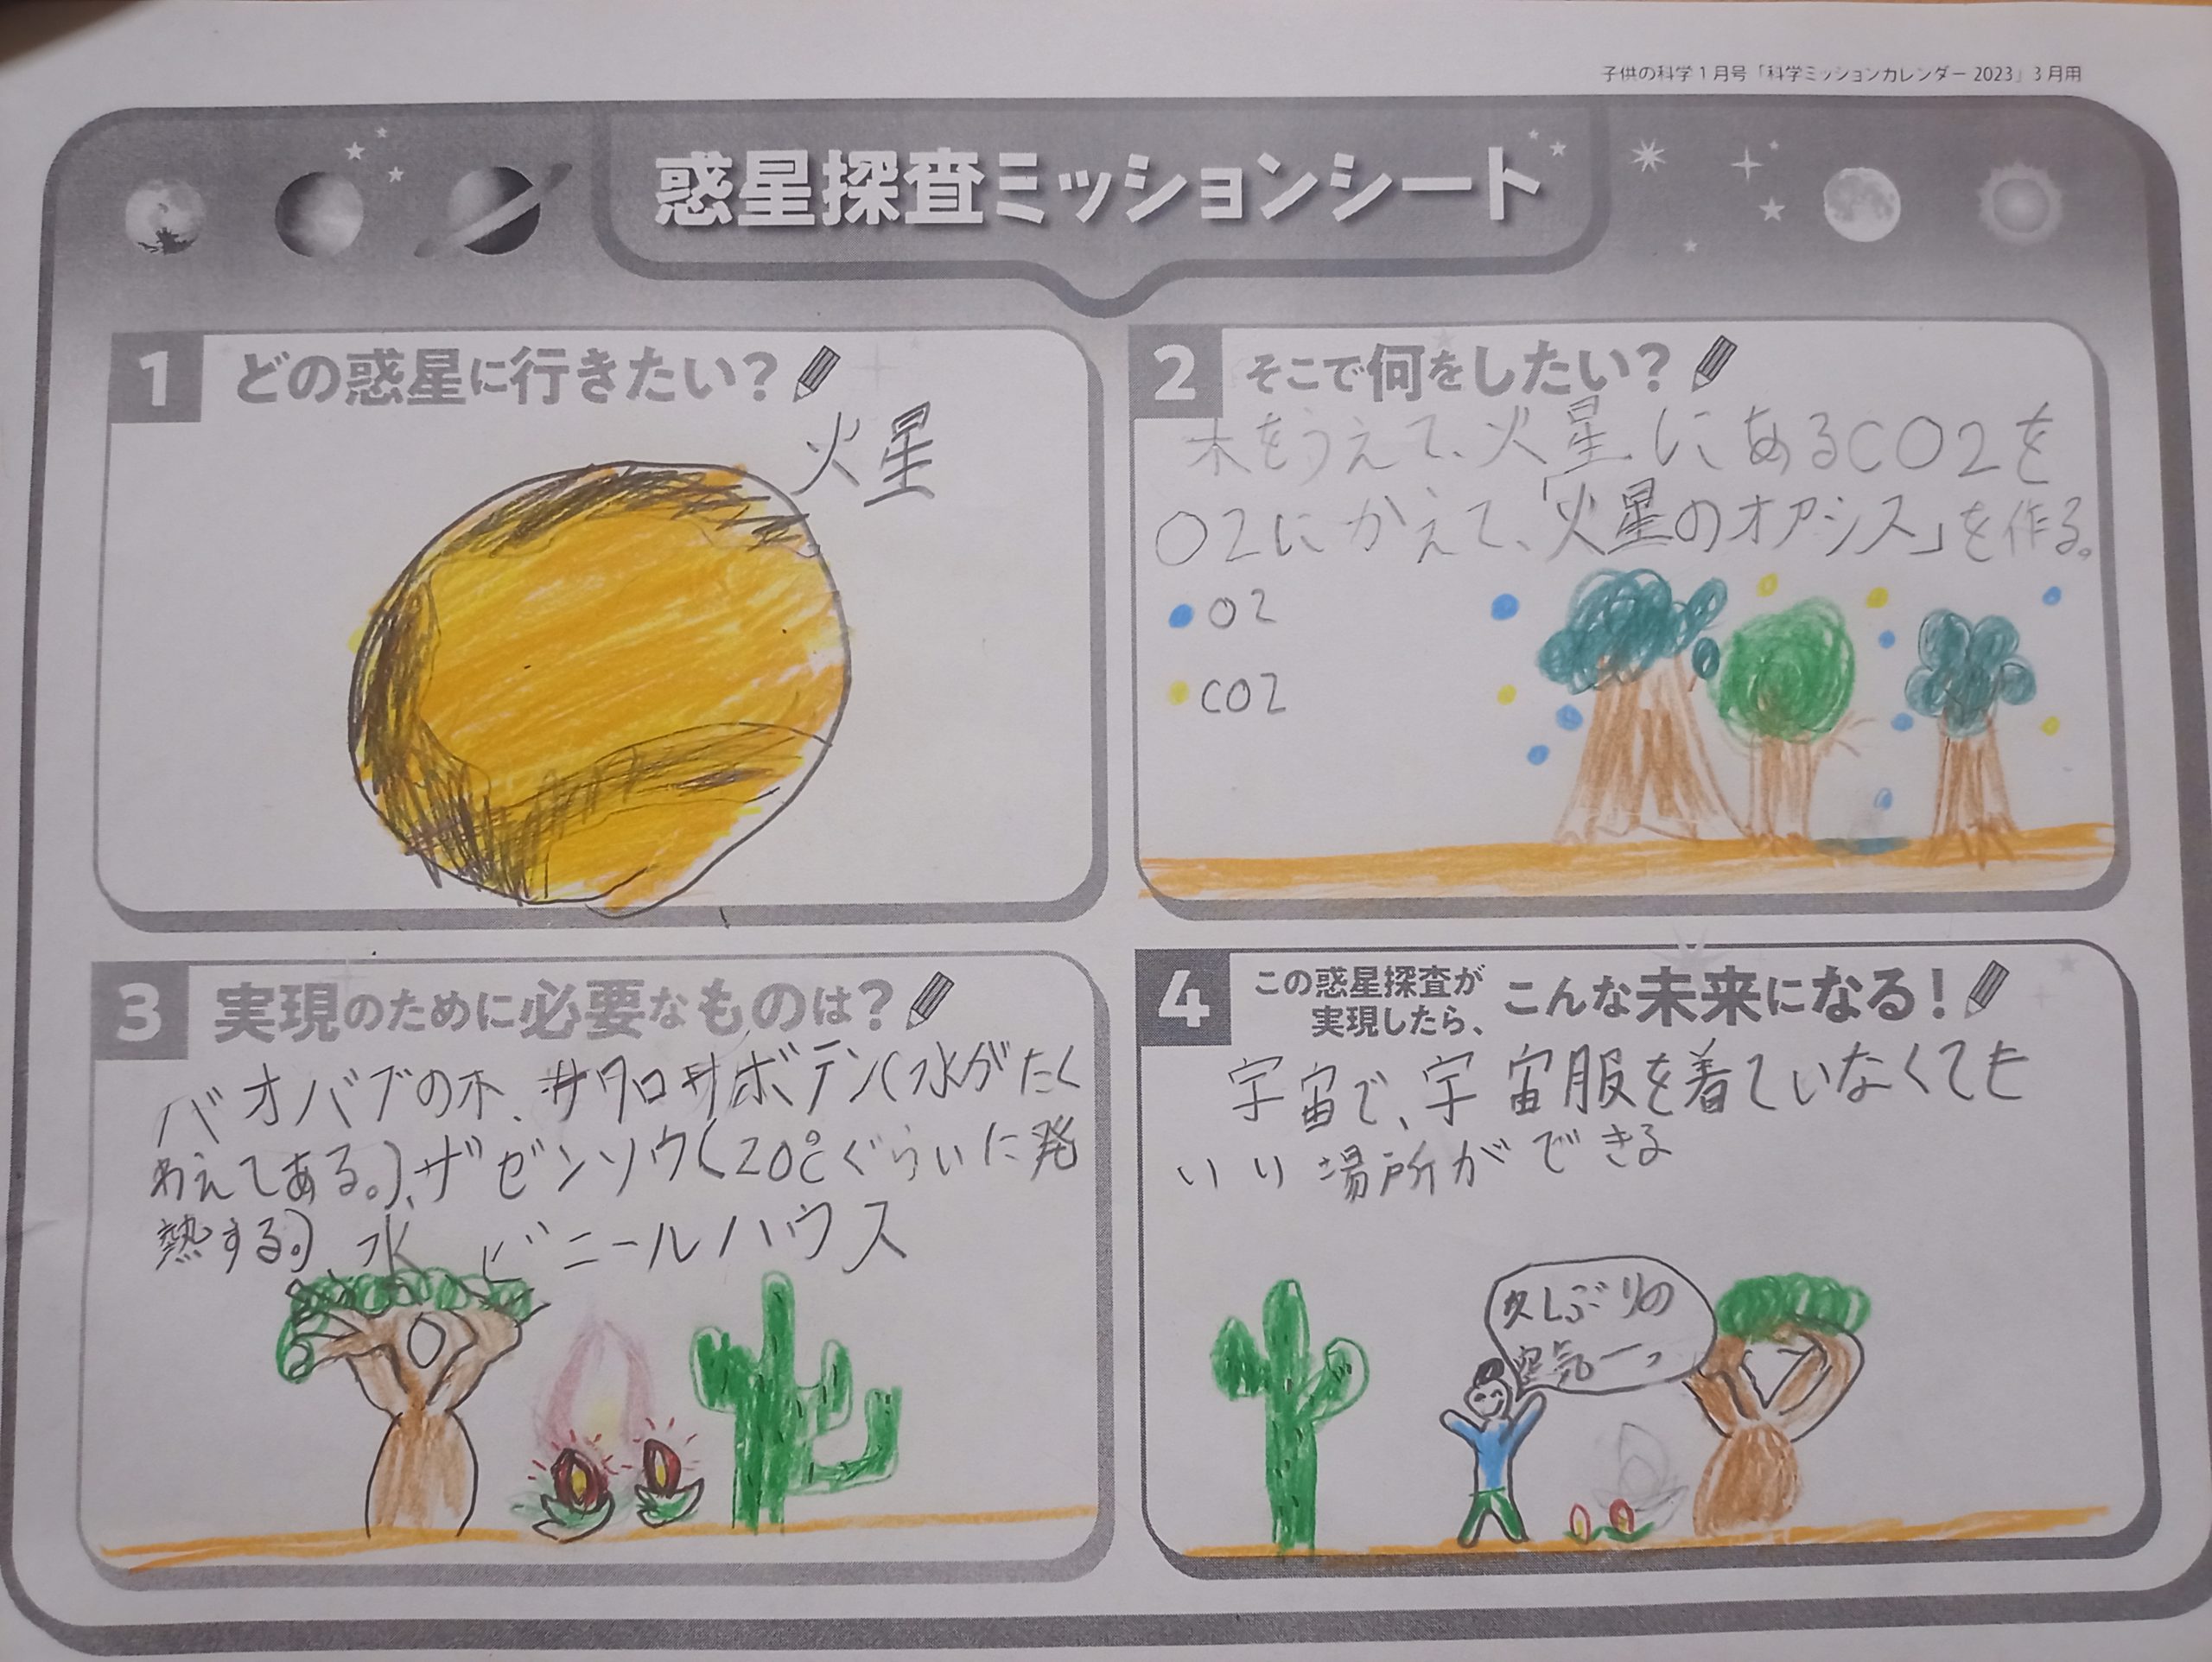 子供の科学1月号「科学ミッションカレンダー2023」3月用
惑星探査ミッションシート
1 どの惑星に行きたい?
火星
2 そこで何をしたい?
木をうえて、火星にあるCO2を
O2にかえて、「火星のオアシス」を作る。
O2
CO2
3 実現のために必要なものは?
バオバブの木、サワロサボテン(水がたく
わえてある。)、ザゼンソウ(20℃ぐらいに発
熱する。)、水 ビニールハウス
4 この惑星探査が
実現したら、こんな未来になる!
宇宙で、宇宙服を着ていなくても
いい場所ができる
久しぶりの
空気ーっ